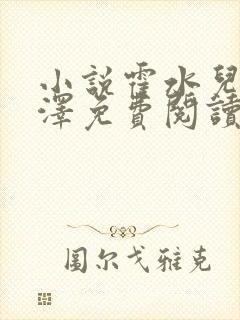 小說霍水兒
澤免費閱讀
圖尔戈雅克